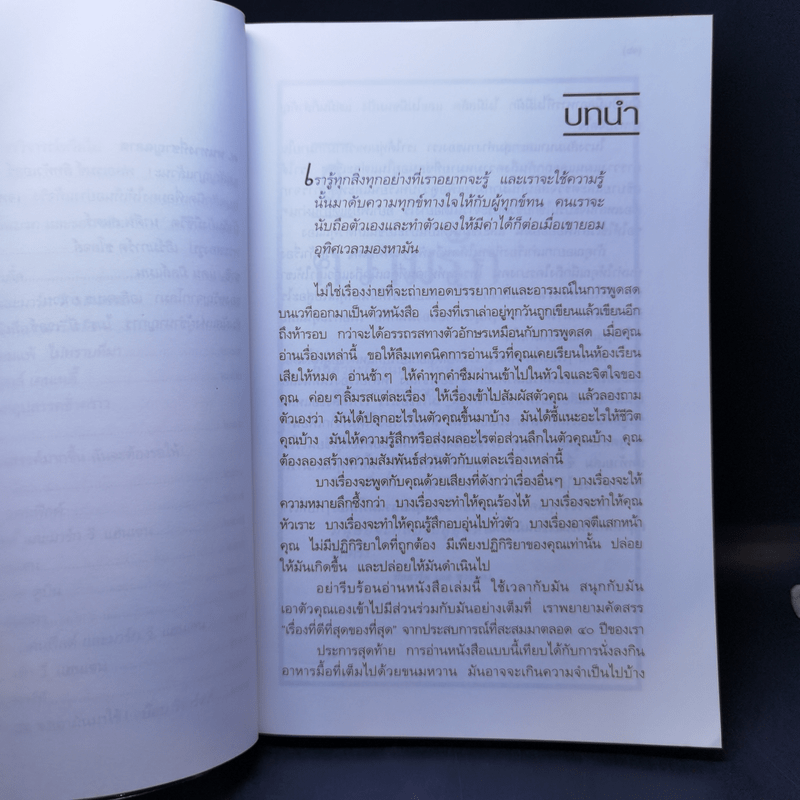 บทนำ
เรารู้ทุกสิ่งทุกอย่างที่เราอยากจะรู้ และเราจะใช้ความรู้
นั้นมาดับความทุกข์ทางใจให้กับผู้ทุกข์ทน คนเราจะ
นับถือตัวเองและทำตัวเองให้มีค่าได้ก็ต่อเมื่อเขายอม
อุทิศเวลามองหามัน
ไม่ใช่เรื่องง่ายที่จะถ่ายทอดบรรยากาศและอารมณ์ในการพูดสด
บนเวทีออกมาเป็นตัวหนังสือ เรื่องที่เราเล่าอยู่ทุกวันถูกเขียนแล้วเขียนอีก
ถึงห้ารอบ กว่าจะได้อรรถรสทางตัวอักษรเหมือนกับการพูดสด เมื่อคุณ
อ่านเรื่องเหล่านี้ ขอให้ลืมเทคนิคการอ่านเร็วที่คุณเคยเรียนในห้องเรียน
เสียให้หมด อ่านช้าๆ ให้คำทุกคำซึมผ่านเข้าไปในหัวใจและจิตใจของ
คุณ ค่อยๆลิ้มรสแต่ละเรื่อง ให้เรื่องเข้าไปสัมผัสตัวคุณ แล้วลองถาม
ตัวเองว่า มันได้ปลุกอะไรในตัวคุณขึ้นมาบ้าง มันได้ชี้แนะอะไรให้ชีวิต
คุณบ้าง มันให้ความรู้สึกหรือส่งผลอะไรต่อส่วนลึกในตัวคุณบ้าง คุณ
ต้องลองสร้างความสัมพันธ์ส่วนตัวกับแต่ละเรื่องเหล่านี้
บางเรื่องจะพูดกับคุณด้วยเสียงที่ดังกว่าเรื่องอื่นๆ บางเรื่องจะให้
ความหมายลึกซึ้งกว่า บางเรื่องจะทำให้คุณร้องไห้ บางเรื่องจะทำให้คุณ
หัวเราะ บางเรื่องจะทำให้คุณรู้สึกอบอุ่นไปทั่วตัว บางเรื่องอาจตีแสกหน้า
คุณ ไม่มีปฏิกิริยาใดที่ถูกต้อง มีเพียงปฏิกิริยาของคุณเท่านั้น ปล่อย
ให้มันเกิดขึ้น และปล่อยให้มันดำเนินไป
อย่ารีบร้อนอ่านหนังสือเล่มนี้ ใช้เวลากับมัน สนุกกับมัน
เอาตัวคุณเองเข้าไปมีส่วนร่วมกับมันอย่างเต็มที่ เราพยายามคัดสรร
"เรื่องที่ดีที่สุดของที่สุด" จากประสบการณ์ที่สะสมมาตลอด ๔๐ ปีของเรา
ประการสุดท้าย การอ่านหนังสือแบบนี้เทียบได้กับการนั่งลงกิน
อาหารมื้อที่เต็มไปด้วยขนมหวาน มันอาจจะเกินความจำเป็นไปบ้าง